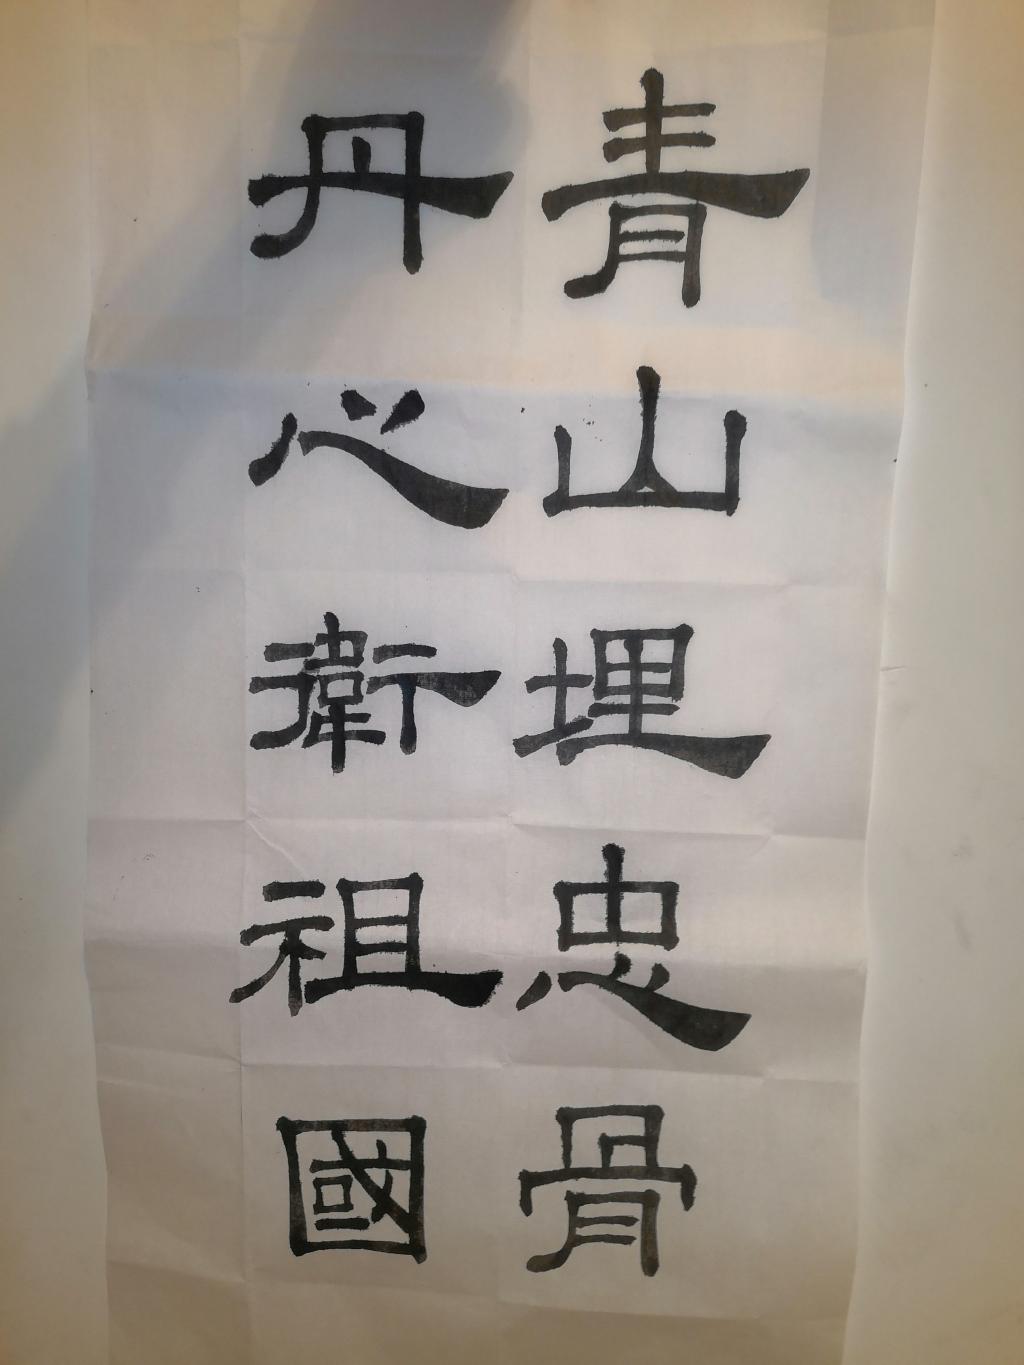 青山埋忠骨
丹心衛祖國